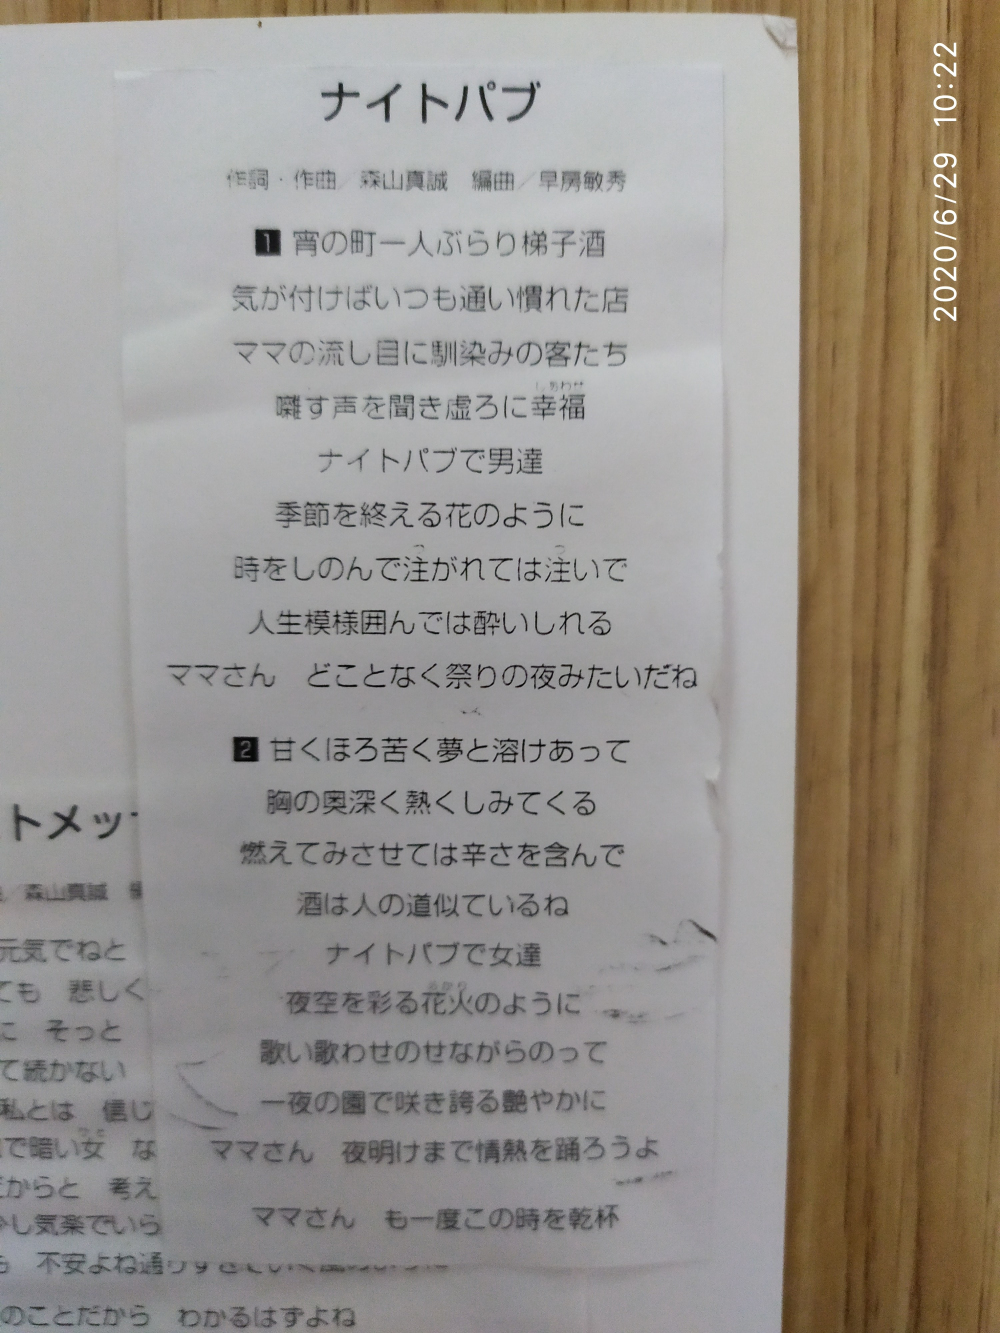 ナイトパブ
作詞・作曲／森山真誠　編曲／早房敏秀
1 宵の町一人ぶらり梯子酒
気が付けばいつも通い慣れた店
ママの流し目に馴染みの客たち
囃す声を聞き虚ろに幸福
しあわせ
ナイトパブで男達
季節を終える花のように
時をしのんで注がれては注いで
つ　つ
人生模様囲んでは酔いしれる
ママさん　どことなく祭りの夜みたいだね
2 甘くほろ苦く夢と溶けあって
胸の奥深く熱くしみてくる
燃えてみさせては辛さを含んで
酒は人の道似ているね
ナイトパブで女達
夜空を彩る花火のように
歌い歌わせのせながらのって
一夜の園で咲き誇る艶やかに
ママさん　夜明けまで情熱を踊ろうよ
ママさん　も一度この時を乾杯
トメッ
／森山真誠
元気でねと
ても　悲しく
に　そっと
て続かない
私とは　信じ
で暗い女　な
だからと　考え
し気楽でいら
不安よね通りすぎていく
のことだから　わかるはずよね
2020/6/29 10:22